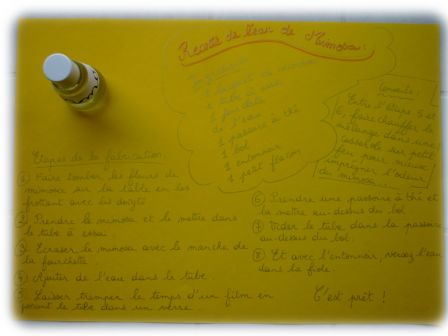 Recette de l'eau de Mimosa :
Ingrédients
1 bouquet de mimosa
1 tube à essai
1 fourchette
de l'eau
1 passoire à thé
1 bol
1 entonnoir
1 petit flacon
Conseils :
Entre l'étape 5 et
6, faire chauffer le
mélange dans une
casserole sur petit
feu pour mieux
imprégner l'odeur
du mimosa
Etapes de la fabrication.
① Faire tomber les fleurs de
mimosa sur la table en les
frottant avec les doigts
② Prendre le mimosa et le mettre dans
le tube à essai
③ Ecraser le mimosa avec le manche de
la fourchette.
④ Ajouter de l'eau dans le tube.
⑤ Laisser tremper le temps d'un film en
posant le tube dans un verre.
⑥ Prendre une passoire à thé et
la mettre au-dessus du bol.
⑦ Vider le tube dans la passoire
au-dessus du bol.
⑧ Et avec l'entonnoir, versez l'eau
dans la fiole.
C'est prêt !